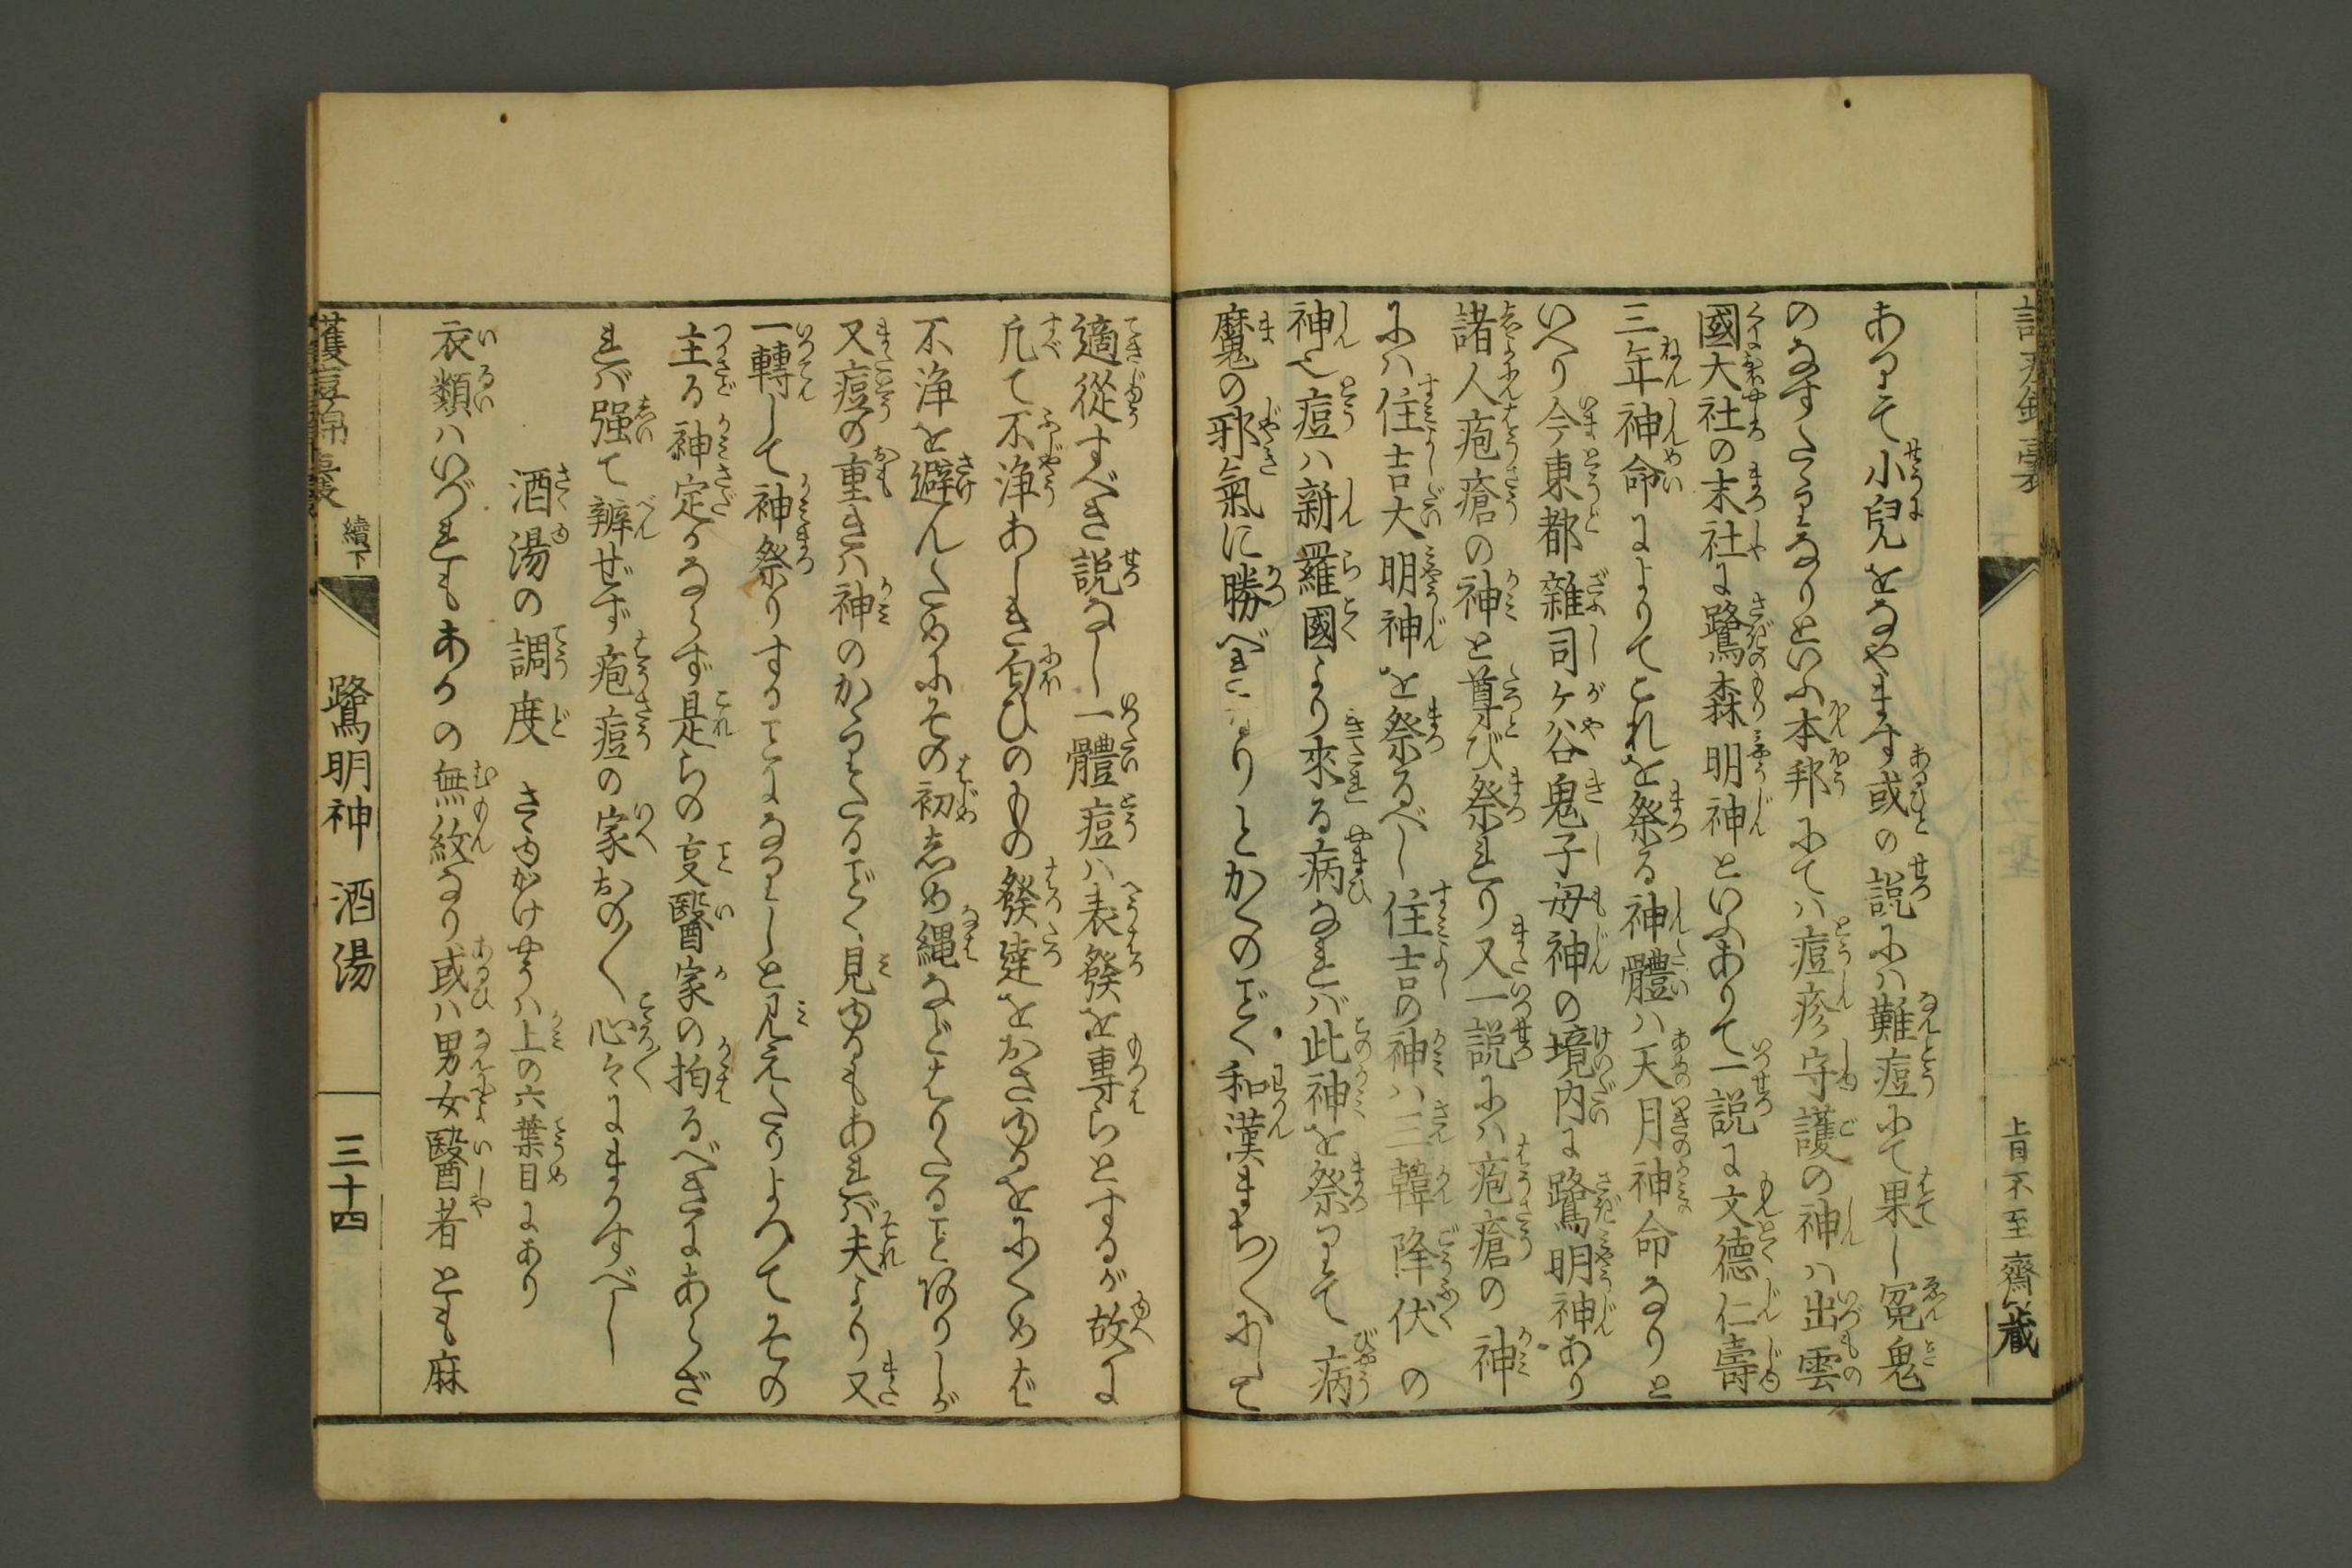 あつて小兒をなやます或の説にハ難痘にて果し冤鬼
のなすたゝりなりといふ本邦にてハ痘疹守護の神ハ出雲
國大社の末社に鷺森明神といふありて一説に文德仁壽
三年神命によりてこれを祭る神體ハ天月神命なりと
いへり今東都雜司ヶ谷鬼子母神の境内に鷺明神あり
諸人疱瘡の神と尊び祭れり又一説にハ疱瘡の神
にハ住吉大明神を祭るべし住吉の神ハ三韓降伏の
神也痘ハ新羅國より來る病なれバ此神を祭りて病
魔の邪氣に勝べきとなりとかくのごく和漢まち〳〵にして
上百不至齋藏
適從すべき説なし一體痘ハ表發を專らとするが故に
凡て不浄あしき匂ひのもの發達をおさゆるをにくめば
不浄を避んためにその初しめ縄などはりたるヿありしが
又痘の重きハ神のかゝりたるごく見ゆるもあれバ夫より又
一轉して神祭りするヿになりしと見えたりよつてその
主る神定かならず是らの叓醫家の拍るべきにあらざ
れバ强て辨ぜず疱痘の家おの〳〵心々にまかすべし
酒湯の調度　さゆがけやうハ上の六葉目にあり
衣類ハいづれもあかの無紋なり或ハ男女醫者とも麻
護痘錦囊　續下　鷺明神　酒湯　三十四